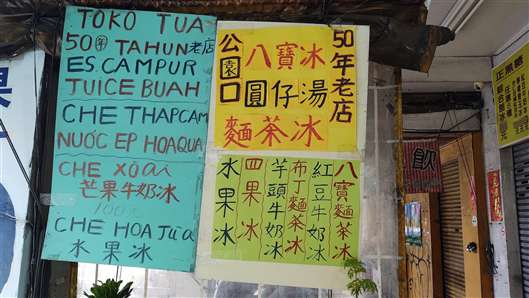 TOKO TUA
50年 TAHUN老店
ES CAMPUR
JUICE BUAH
CHE THAPCAM
NUỚC EP HOAQUA
CHE Xòai
芒果牛奶冰
CHE HOA JUA
水果冰
公園口
八寶冰
圓仔湯
麵茶冰
50年老店
水果冰
四果冰
芋頭牛奶冰
布丁麵茶冰
紅豆牛奶冰
八寶麵茶冰
飲
果